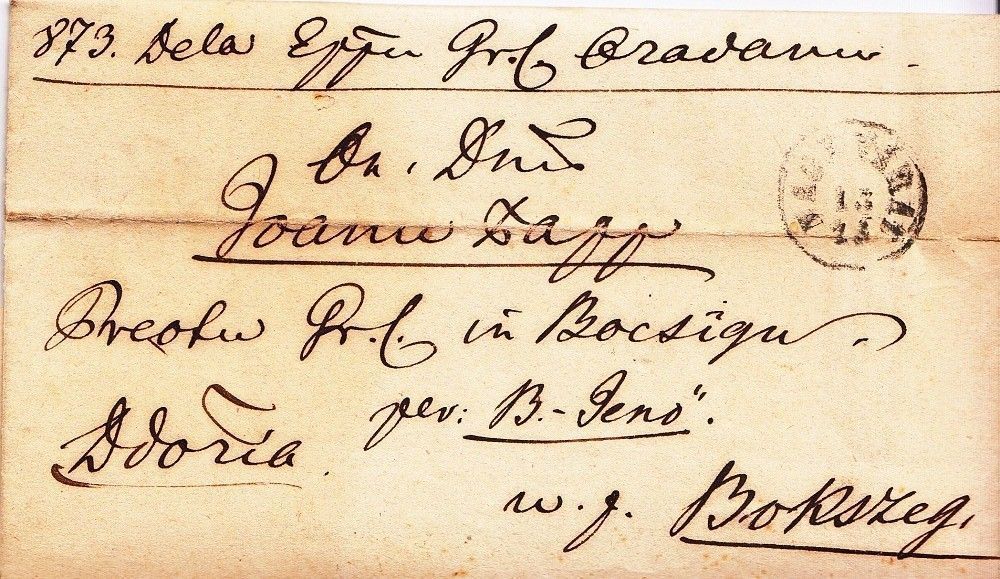 873. Dela Eppu Gr. C. Oradanu.
On. Dnu
Joanu Papp
Preotu Gr. C. in Bocsigu.
per: B.-Jenö".
Ddoria.
u. p. Bokszeg.
NAGY VÁRAD
13